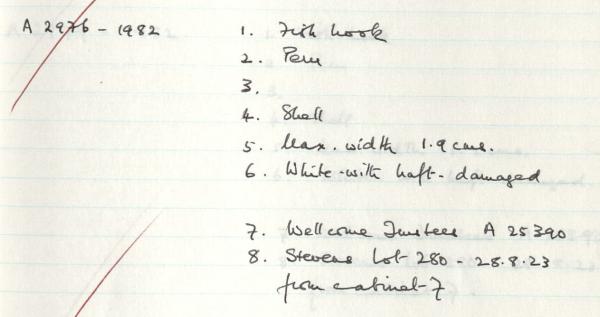 A 2976 - 1982 1. Fish hook
2. Peru
3.
4. Shell
5. Max. width 1.9 cms.
6. White with haft - damaged
7. Wellcome Trustees A 25390
8. Stevens Lot 280 - 28.8.23
from cabinet 7